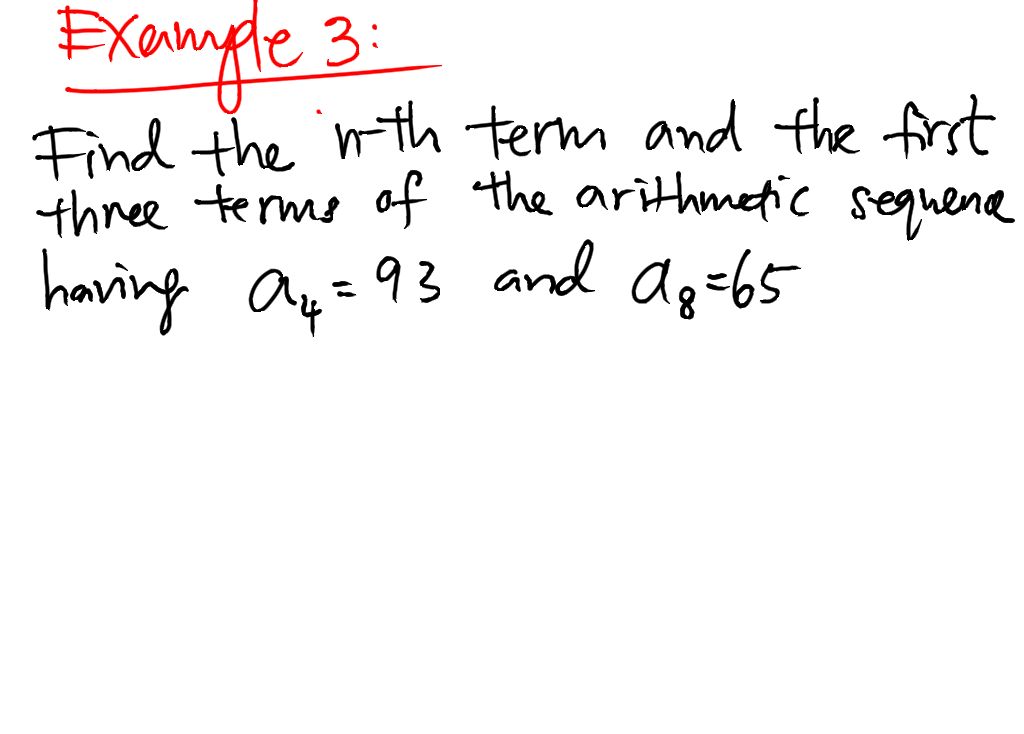 Example 3:
Find the n-th term and the first
three terms of the arithmetic sequence
having a₄ = 93 and a₈ = 65